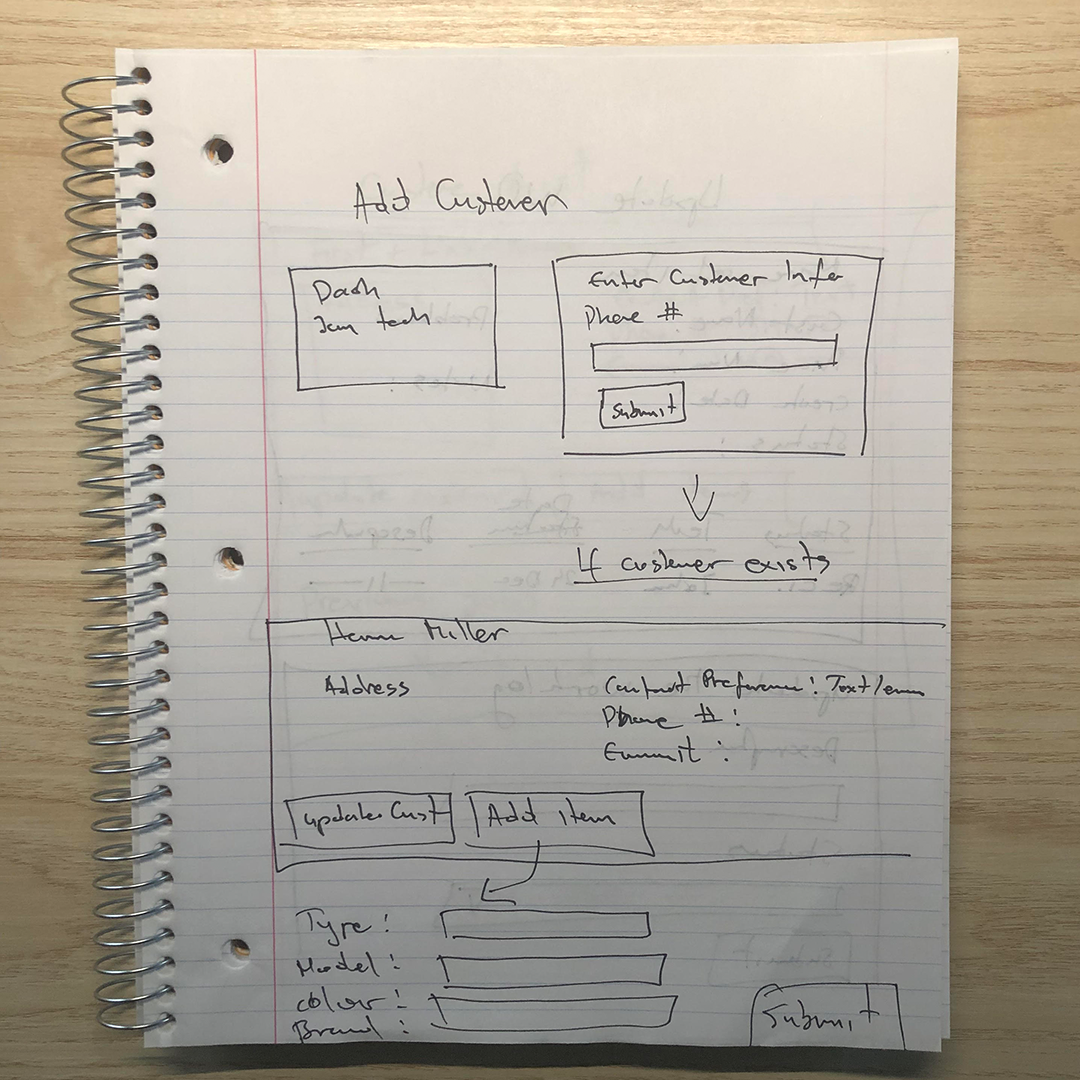 Add Customer
Dash
Enter Customer Info
Phone #
Submit
If customer exists
Miller
Address
Contact Preference: Text/
Phone #:
update Cust
Add Item
Type:
Model:
colour:
Brand:
Submit